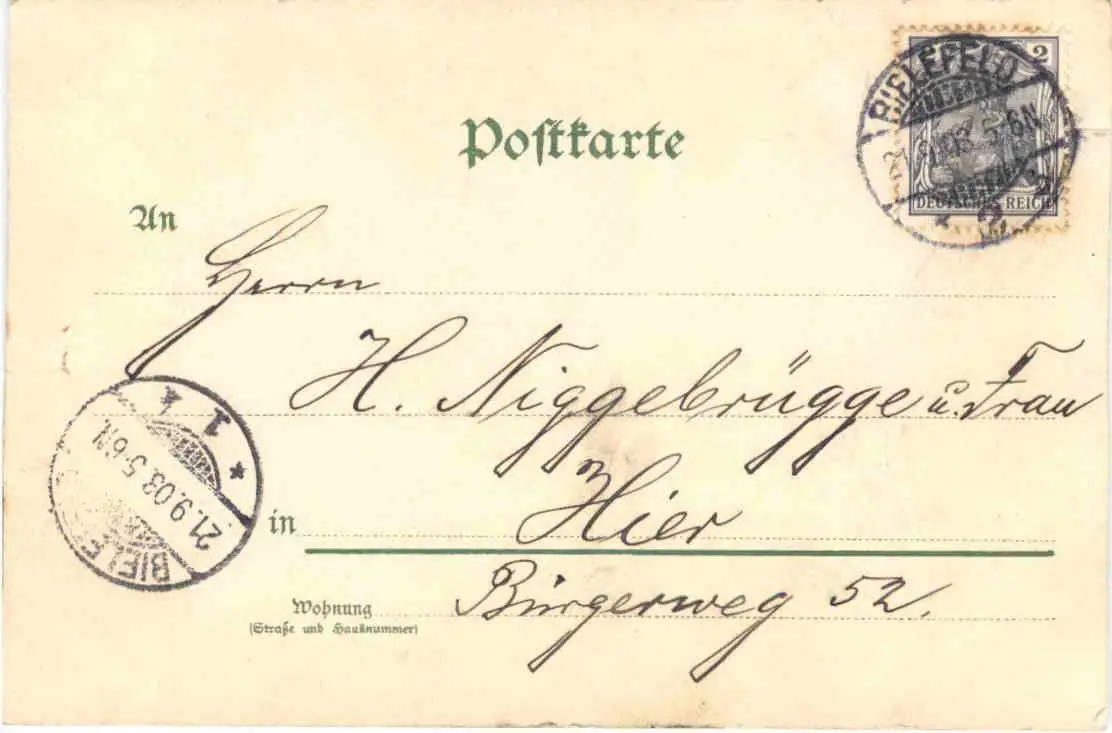 Postkarte
2
BIELEFELD
21.9.03. 5-6N.
2
DEUTSCHES REICH
An
Herrn
H. Niggebrügge u. Frau
in Hier
Wohnung
(Straße und Hausnummer)
Bürgerweg 52.
BIELE
21.9.03. 5-6N.
1